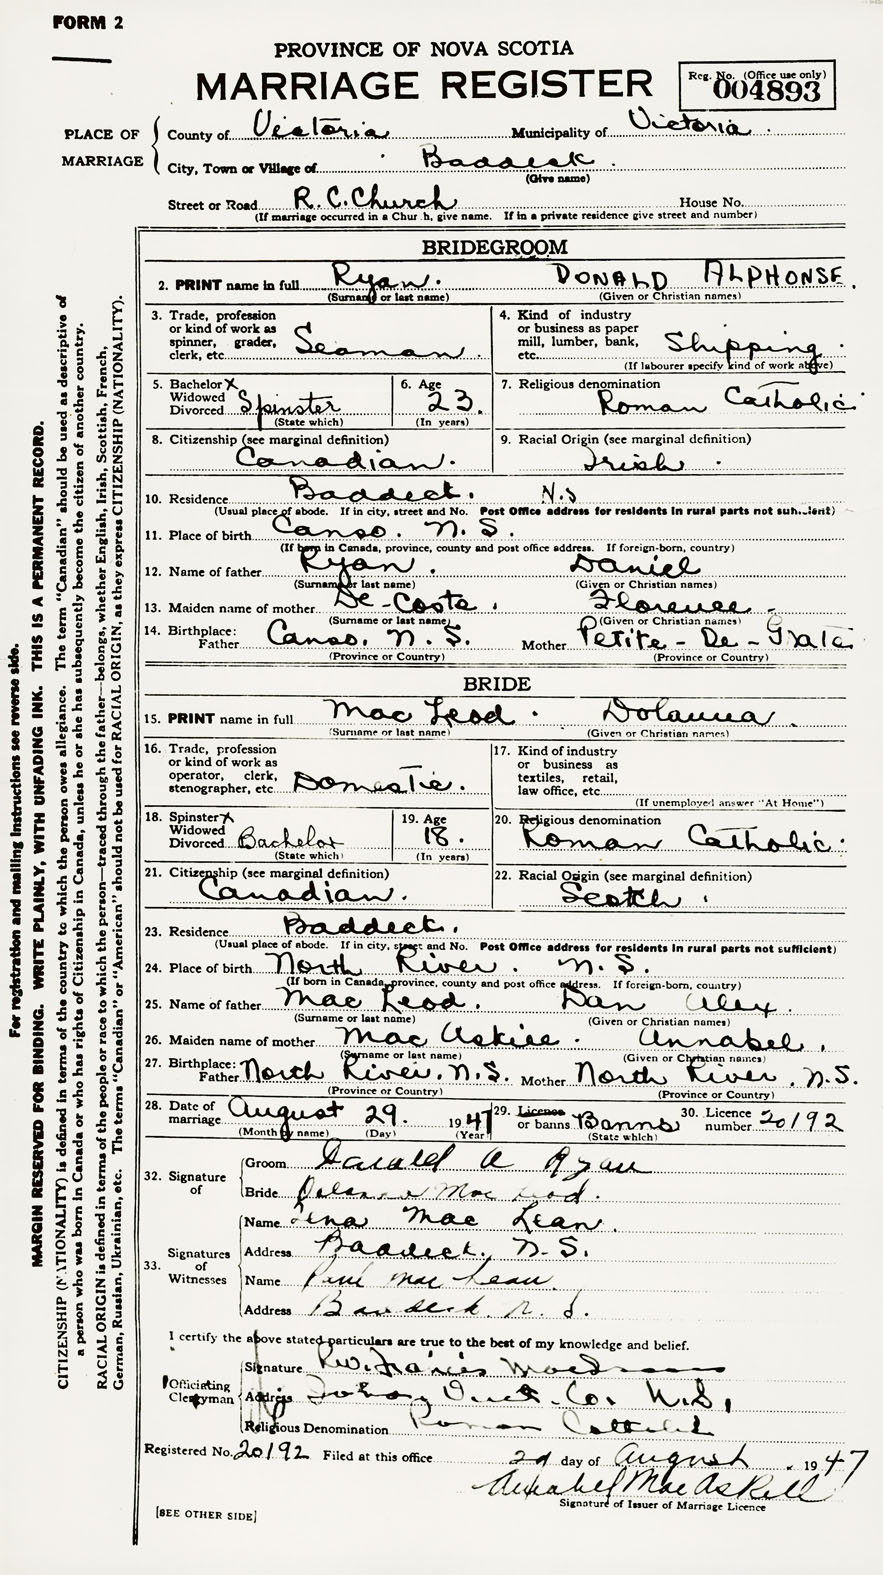 FORM 2
PROVINCE OF NOVA SCOTIA
MARRIAGE REGISTER
Reg. No. (Office use only)
004893
PLACE OF MARRIAGE
County of Victoria Municipality of Victoria
City, Town or Village of Baddeck
(Give name)
Street or Road R.C. Church House No.
(If marriage occurred in a Chur h, give name. If in a private residence give street and number)
BRIDEGROOM
2. PRINT name in full Ryan. DONALD ALPHONSE.
(Surname or last name) (Given or Christian names)
3. Trade, profession or kind of work as spinner, grader, clerk, etc. Seaman
4. Kind of industry or business as paper mill, lumber, bank, etc. Shipping
(If labourer specify kind of work above)
5. Bachelor X Widowed Divorced Spinster
(State which)
6. Age 23.
(In years)
7. Religious denomination Roman Catholic
8. Citizenship (see marginal definition) Canadian.
9. Racial Origin (see marginal definition) Irish
10. Residence Baddeck. N.S
(Usual place of abode. If in city, street and No. Post Office address for residents in rural parts not suh..ient)
11. Place of birth Canso. N.S.
(If born in Canada, province, county and post office address. If foreign-born, country)
12. Name of father Ryan. Daniel
(Surname or last name) (Given or Christian names)
13. Maiden name of mother De-Coste. Florence
(Surname or last name) (Given or Christian names)
14. Birthplace: Father Canso. N.S. Mother Petite-De-Grate
(Province or Country) (Province or Country)
BRIDE
15. PRINT name in full Mac Leod. Dolanna
(Surname or last name) (Given or Christian names)
16. Trade, profession or kind of work as operator, clerk, stenographer, etc Domestic.
17. Kind of industry or business as textiles, retail, law office, etc.
(If unemployed answer "At Home")
18. Spinster X Widowed Divorced Bachelor
(State which)
19. Age 18.
(In years)
20. Religious denomination Roman Catholic.
21. Citizenship (see marginal definition) Canadian.
22. Racial Origin (see marginal definition) Scotch
23. Residence Baddeck.
(Usual place of abode. If in city, street and No. Post Office address for residents in rural parts not sufficient)
24. Place of birth North River. N.S.
(If born in Canada, province, county and post office address. If foreign-born, country)
25. Name of father Mac Leod. Dan Alex.
(Surname or last name) (Given or Christian names)
26. Maiden name of mother Mac Askill. Annabel.
(Surname or last name) (Given or Christian names)
27. Birthplace: Father North River. N.S. Mother North River. N.S.
(Province or Country) (Province or Country)
28. Date of marriage August 29. 1947
(Month by name) (Day) (Year)
29. Licence or banns Banns
(State which)
30. Licence number 20192
32. Signature of
Groom Donald A Ryan
Bride Mac Leod.
33. Signatures of Witnesses
Name Tena Mac Lean.
Address Baddeck, N.S.
Name Mac Lean
Address Baddeck. N.S.
I certify the above stated particulars are true to the best of my knowledge and belief.
Officiating Clergyman
Signature Rev. Francis
Address Co. N.S.
Religious Denomination Roman Catholic
Registered No. 20192 Filed at this office 2d day of August 1947
Annabel MacAskill
Signature of Issuer of Marriage Licence
[SEE OTHER SIDE]
For registration and mailing instructions see reverse side.
MARGIN RESERVED FOR BINDING. WRITE PLAINLY, WITH UNFADING INK. THIS IS A PERMANENT RECORD.
CITIZENSHIP (NATIONALITY) is defined in terms of the country to which the person owes allegiance. The term "Canadian" should be used as descriptive of
a person who was born in Canada or who has rights of Citizenship in Canada, unless he or she has subsequently become the citizen of another country.
RACIAL ORIGIN is defined in terms of the people or race to which the person—traced through the father—belongs, whether English, Irish, Scottish, French,
German, Russian, Ukrainian, etc. The terms "Canadian" or "American" should not be used for RACIAL ORIGIN, as they express CITIZENSHIP (NATIONALITY).